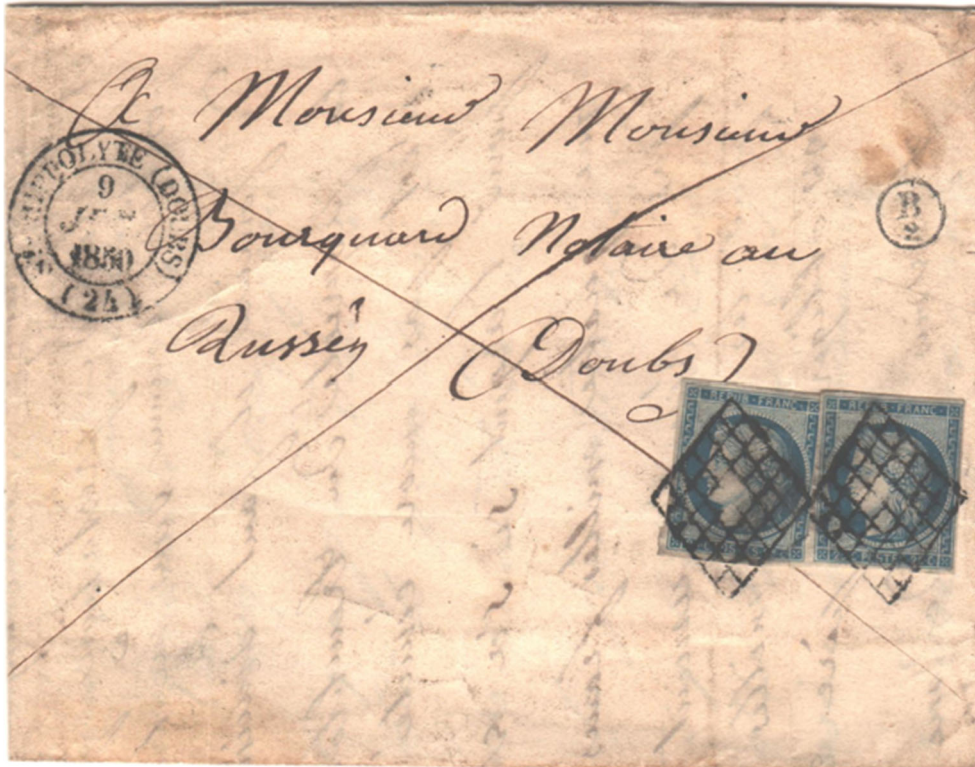 A Monsieur Monsieur
Bourquard Notaire au
Russey (Doubs)
St HIPPOLYTE (DOUBS)
9
1850
(24)
B
2
REPUB·FRANC
REPUB·FRANC
25 C
POSTE 25 C